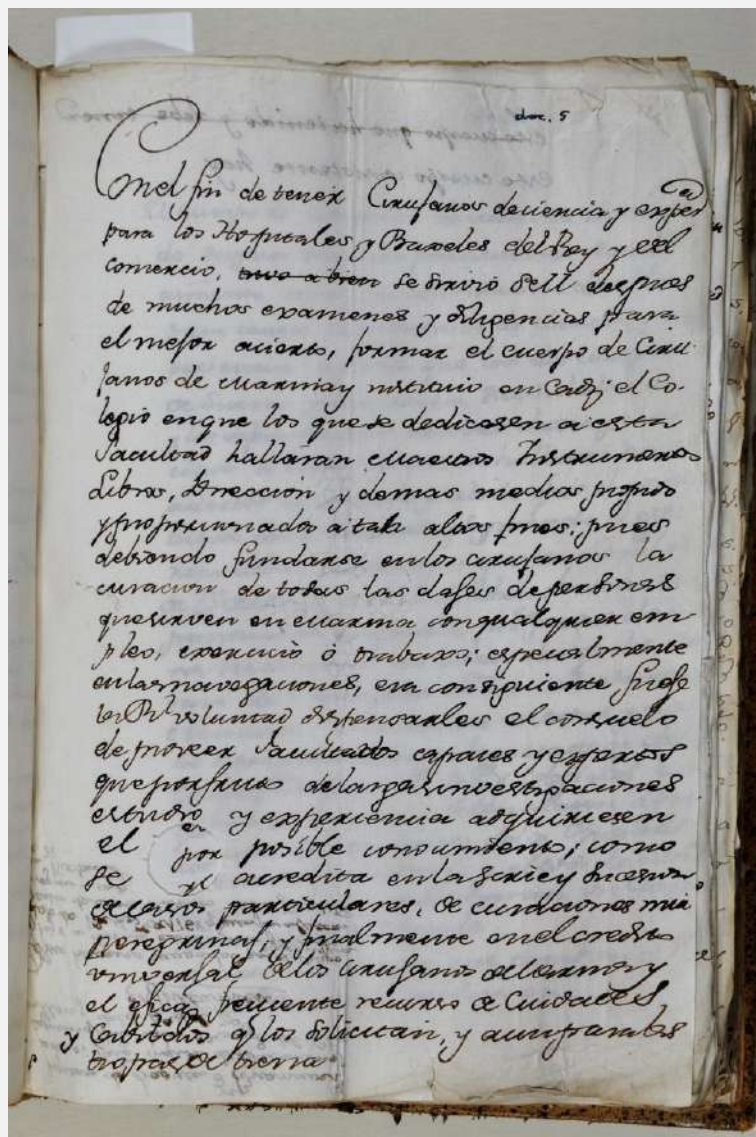 doc. 5
Con el fin de tener Cirujanos de ciencia y exper
para los Hospitales, y Baxeles del Rey y el
comercio, tuvo a bien se sirvió S.M. despues
de muchos examenes y diligencias para
el mejor acierto, formar el cuerpo de Ciru-
janos de Marina y instituio en Cadiz el Co-
legio en que los que se dedicasen a esta
facultad hallaran Maestros Instrumentos
Libros, Direccion y demas medios propios
y proporcionados a tan altos fines; pues
debiendo fundarse en los cirujanos la
curacion de todas las clases de personas
que sirven en Marina con qualquier em
pleo, exercicio ó trabaxo; especialmente
en las navegaciones, era consiguiente fuese
la Rl. voluntad dispensarles el consuelo
de proveer facultados capaces y expertos
que por fruto de largas investigaciones
estudio y experiencia adquiriesen
el por posible conocimiento; como
se acredita en la serie y sucesion
de casos particulares, de curaciones mui
peregrinas, y finalmente en el credito
universal de los cirujanos de la armada y
el eficaz frecuente recurso de Ciudades
y Cabildos q los solicitan, y aun para las
tropas de tierra